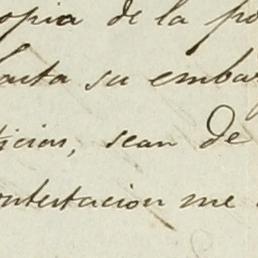 opia de la po
hasta su embar
ticias, sean de
ontestacion me